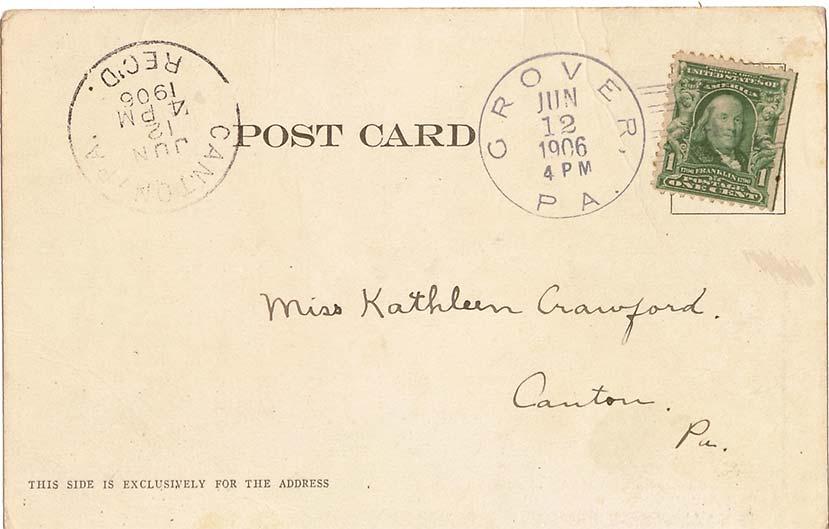 CANTON, PA.
JUN
12
4 PM
1906
REC'D.
POST CARD
GROVER,
JUN
12
1906
4 PM
PA.
UNITED STATES OF
AMERICA
1 1790 FRANKLIN 1790 1
POSTAGE
ONE CENT
Miss Kathleen Crawford.
Canton.
Pa.
THIS SIDE IS EXCLUSIVELY FOR THE ADDRESS